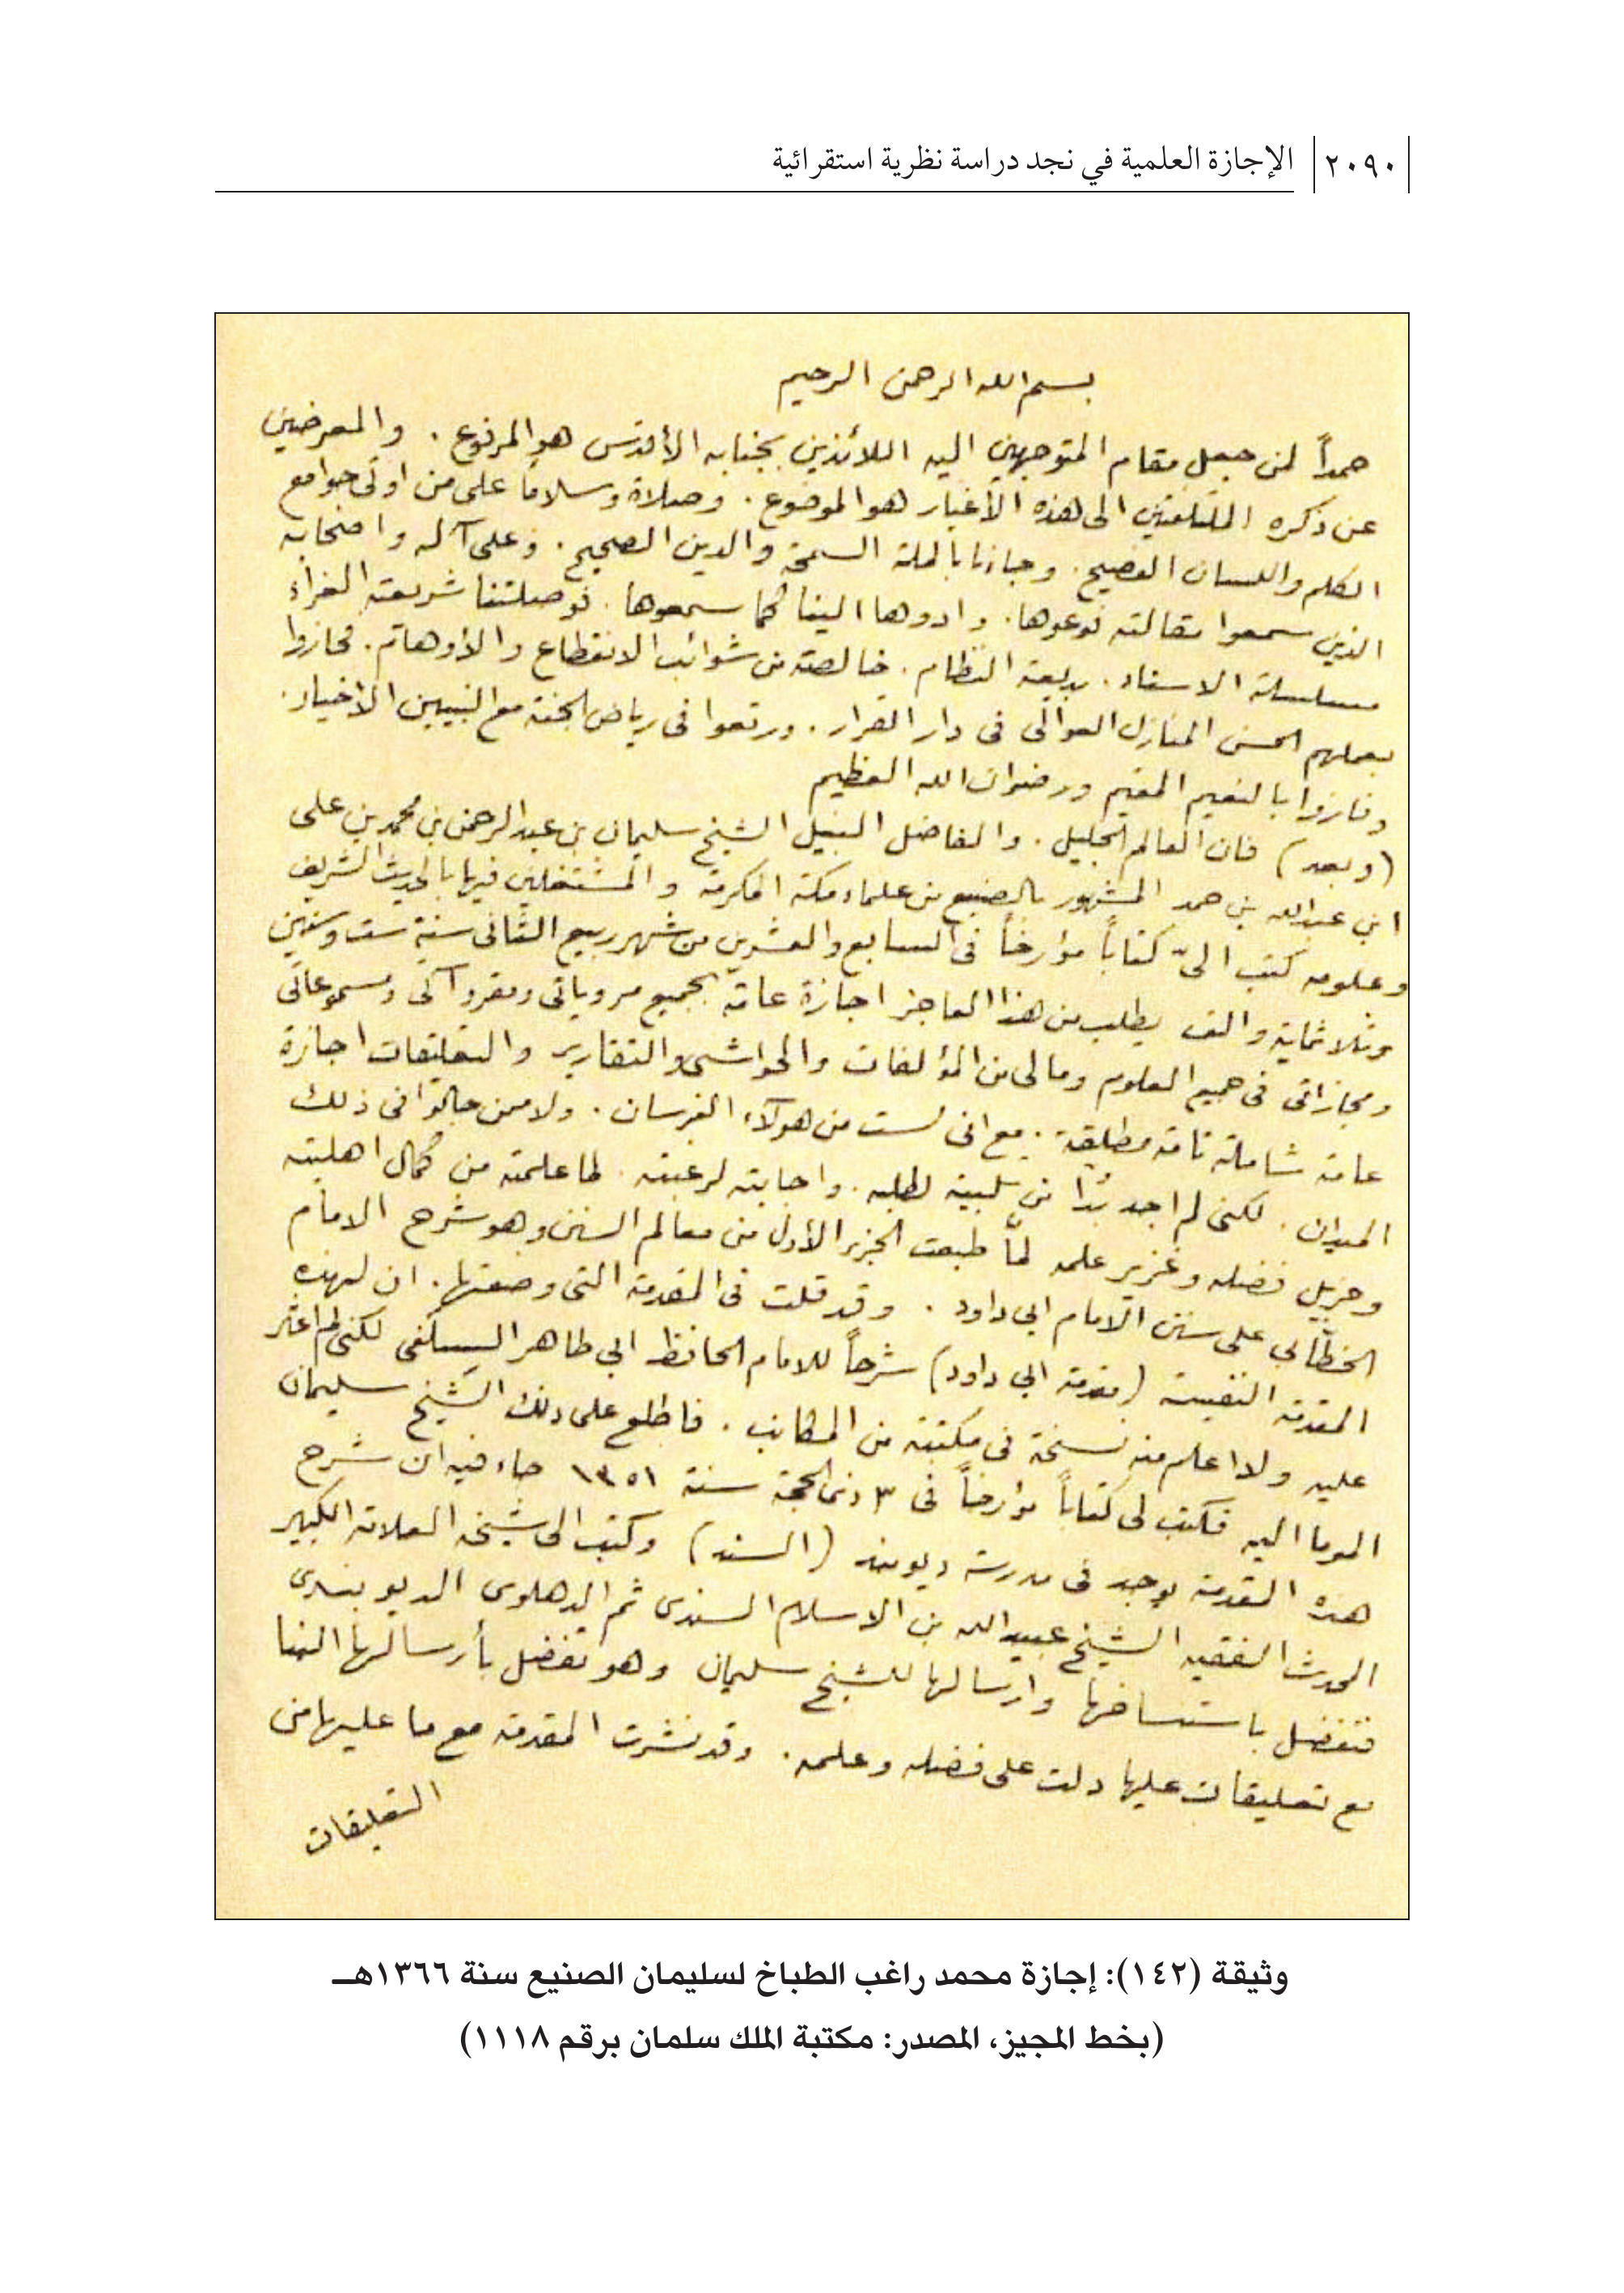 ٢٠٩٠ الإجازة العلمية في نجد دراسة نظرية استقرائية
بسم الله الرحمن الرحيم
حمداً لمن جعل مقام المتوجهين اليه اللائذين بجنابه الأقدس هو المرفوع . والمعرضين
عن ذكره الملتفتين الى هذه الأغيار هو الموضوع . وصلاة وسلاماً على من اوتى جوامع
الكلم واللسان الفصيح . وجاءنا بالملة السمحة والدين الصحيح . وعلى آله واصحابه
الذين سمعوا مقالته فوعوها . وادوها الينا كما سمعوها . فوصلتنا شريعته الغراء
مسلسلة الاسناد . بديعة النظام . خالصة من شوائب الانقطاع والأوهام . فحازوا
بعملهم الحسن المنازل العوالى فى دار القرار . ورتعوا فى رياض الجنة مع النبيين الاخيار .
وفازوا بالنعيم المقيم ورضوان الله العظيم
(وبعد) فان العالم الجليل . والفاضل النبيل الشيخ سليمان بن عبد الرحمن بن محمد بن على
ابن عبد الله بن حمد المشهور بالصنيع من علماء مكة المكرمة والمشتغلين فيها بالحديث الشريف
وعلومه كتب الىّ كتاباً مؤرخاً فى السابع والعشرين من شهر ربيع الثانى سنة ست وستين
وثلاثماية والف يطلب من هذا العاجز اجازة عامة بجميع مروياتى ومقروآتى ومسموعاتى
ومجازاتى فى جميع العلوم ومالى من المؤلفات والحواشى والتقارير والتعليقات اجازة
عامة شاملة تامة مطلقة . مع انى لست من هولآء الفرسان . ولا ممن جالوا فى ذلك
الميدان . لكنى لم اجد بُدّا من تلبية لطلبه . واجابته لرغبته . لما علمته من كمال اهليته
وجزيل فضله وغزير علمه لمّا طبعت الجزء الأول من معالم السنن وهو شرح الامام
الخطّابى على سنن الامام ابى داود . وقد قلت فى المقدمة التى وضعتها . ان لهذه
المقدمة النفيسة (مقدمة ابى داود) شرحاً للامام الحافظ ابى طاهر السِلَفى لكنى لم اعثر
عليه ولا اعلم منه نسخة فى مكتبة من المكاتب . فاطلع على ذلك الشيخ سليمان
الموما اليه فكتب لى كتاباً مؤرخاً فى ٣ ذى الحجة سنة ١٣٥١ جاء فيه ان شرح
هذه المقدمة يوجد فى مدرسة ديوبند (السند) وكتب الى شيخه العلامة الكبير
المحدث الفقيه الشيخ عبيد الله بن الاسلام السندى ثم الدهلوى الديوبندى
فتفضل باستنساخها وارسالها للشيخ سليمان وهو تفضل بأرسالها الينا
مع تعليقات عليها دلت على فضله وعلمه . وقد نشرت المقدمة مع ما عليها من
التعليقات
وثيقة (١٤٢): إجازة محمد راغب الطباخ لسليمان الصنيع سنة ١٣٦٦هـ
(بخط المجيز، المصدر: مكتبة الملك سلمان برقم ١١١٨)